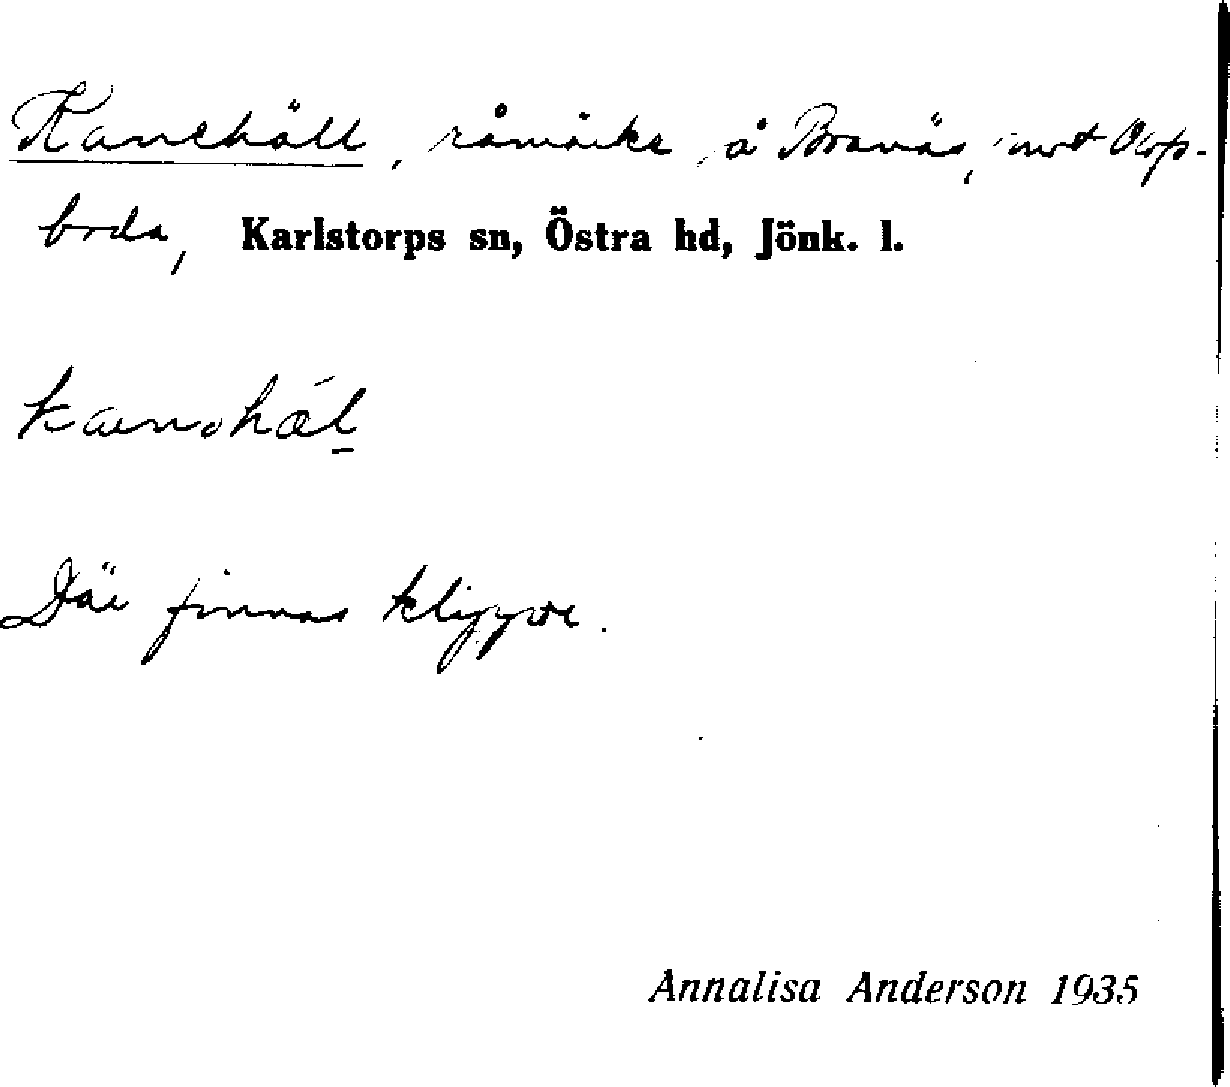 Kanehäll, råmärke, å Branäs, mot Olofs-
boda, Karlstorps sn, Östra hd, Jönk. l.
Där finnas klippor.
Annalisa Anderson 1935